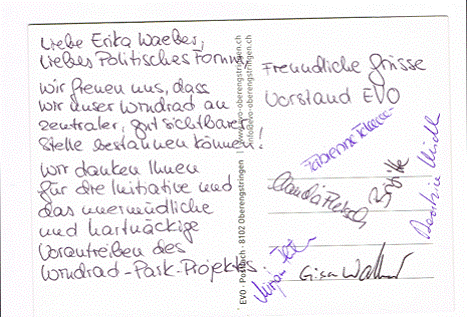 Liebe Erika Waeber,
Liebes Politisches Forum,
Wir freuen uns, dass
wir unser Windrad an
zentraler, gut sichtbarer
Stelle bestaunen können!
Wir danken Ihnen
für die Initiative und
das unermüdliche
und hartnäckige
Vorantreiben des
Windrad-Park-Projektes.
EVO · Postfach · 8102 Oberengstringen
www.evo-oberengstringen.ch
info@evo-oberengstringen.ch
Freundliche Grüsse
Vorstand EVO
Claudia
Brigitte
Beatrice